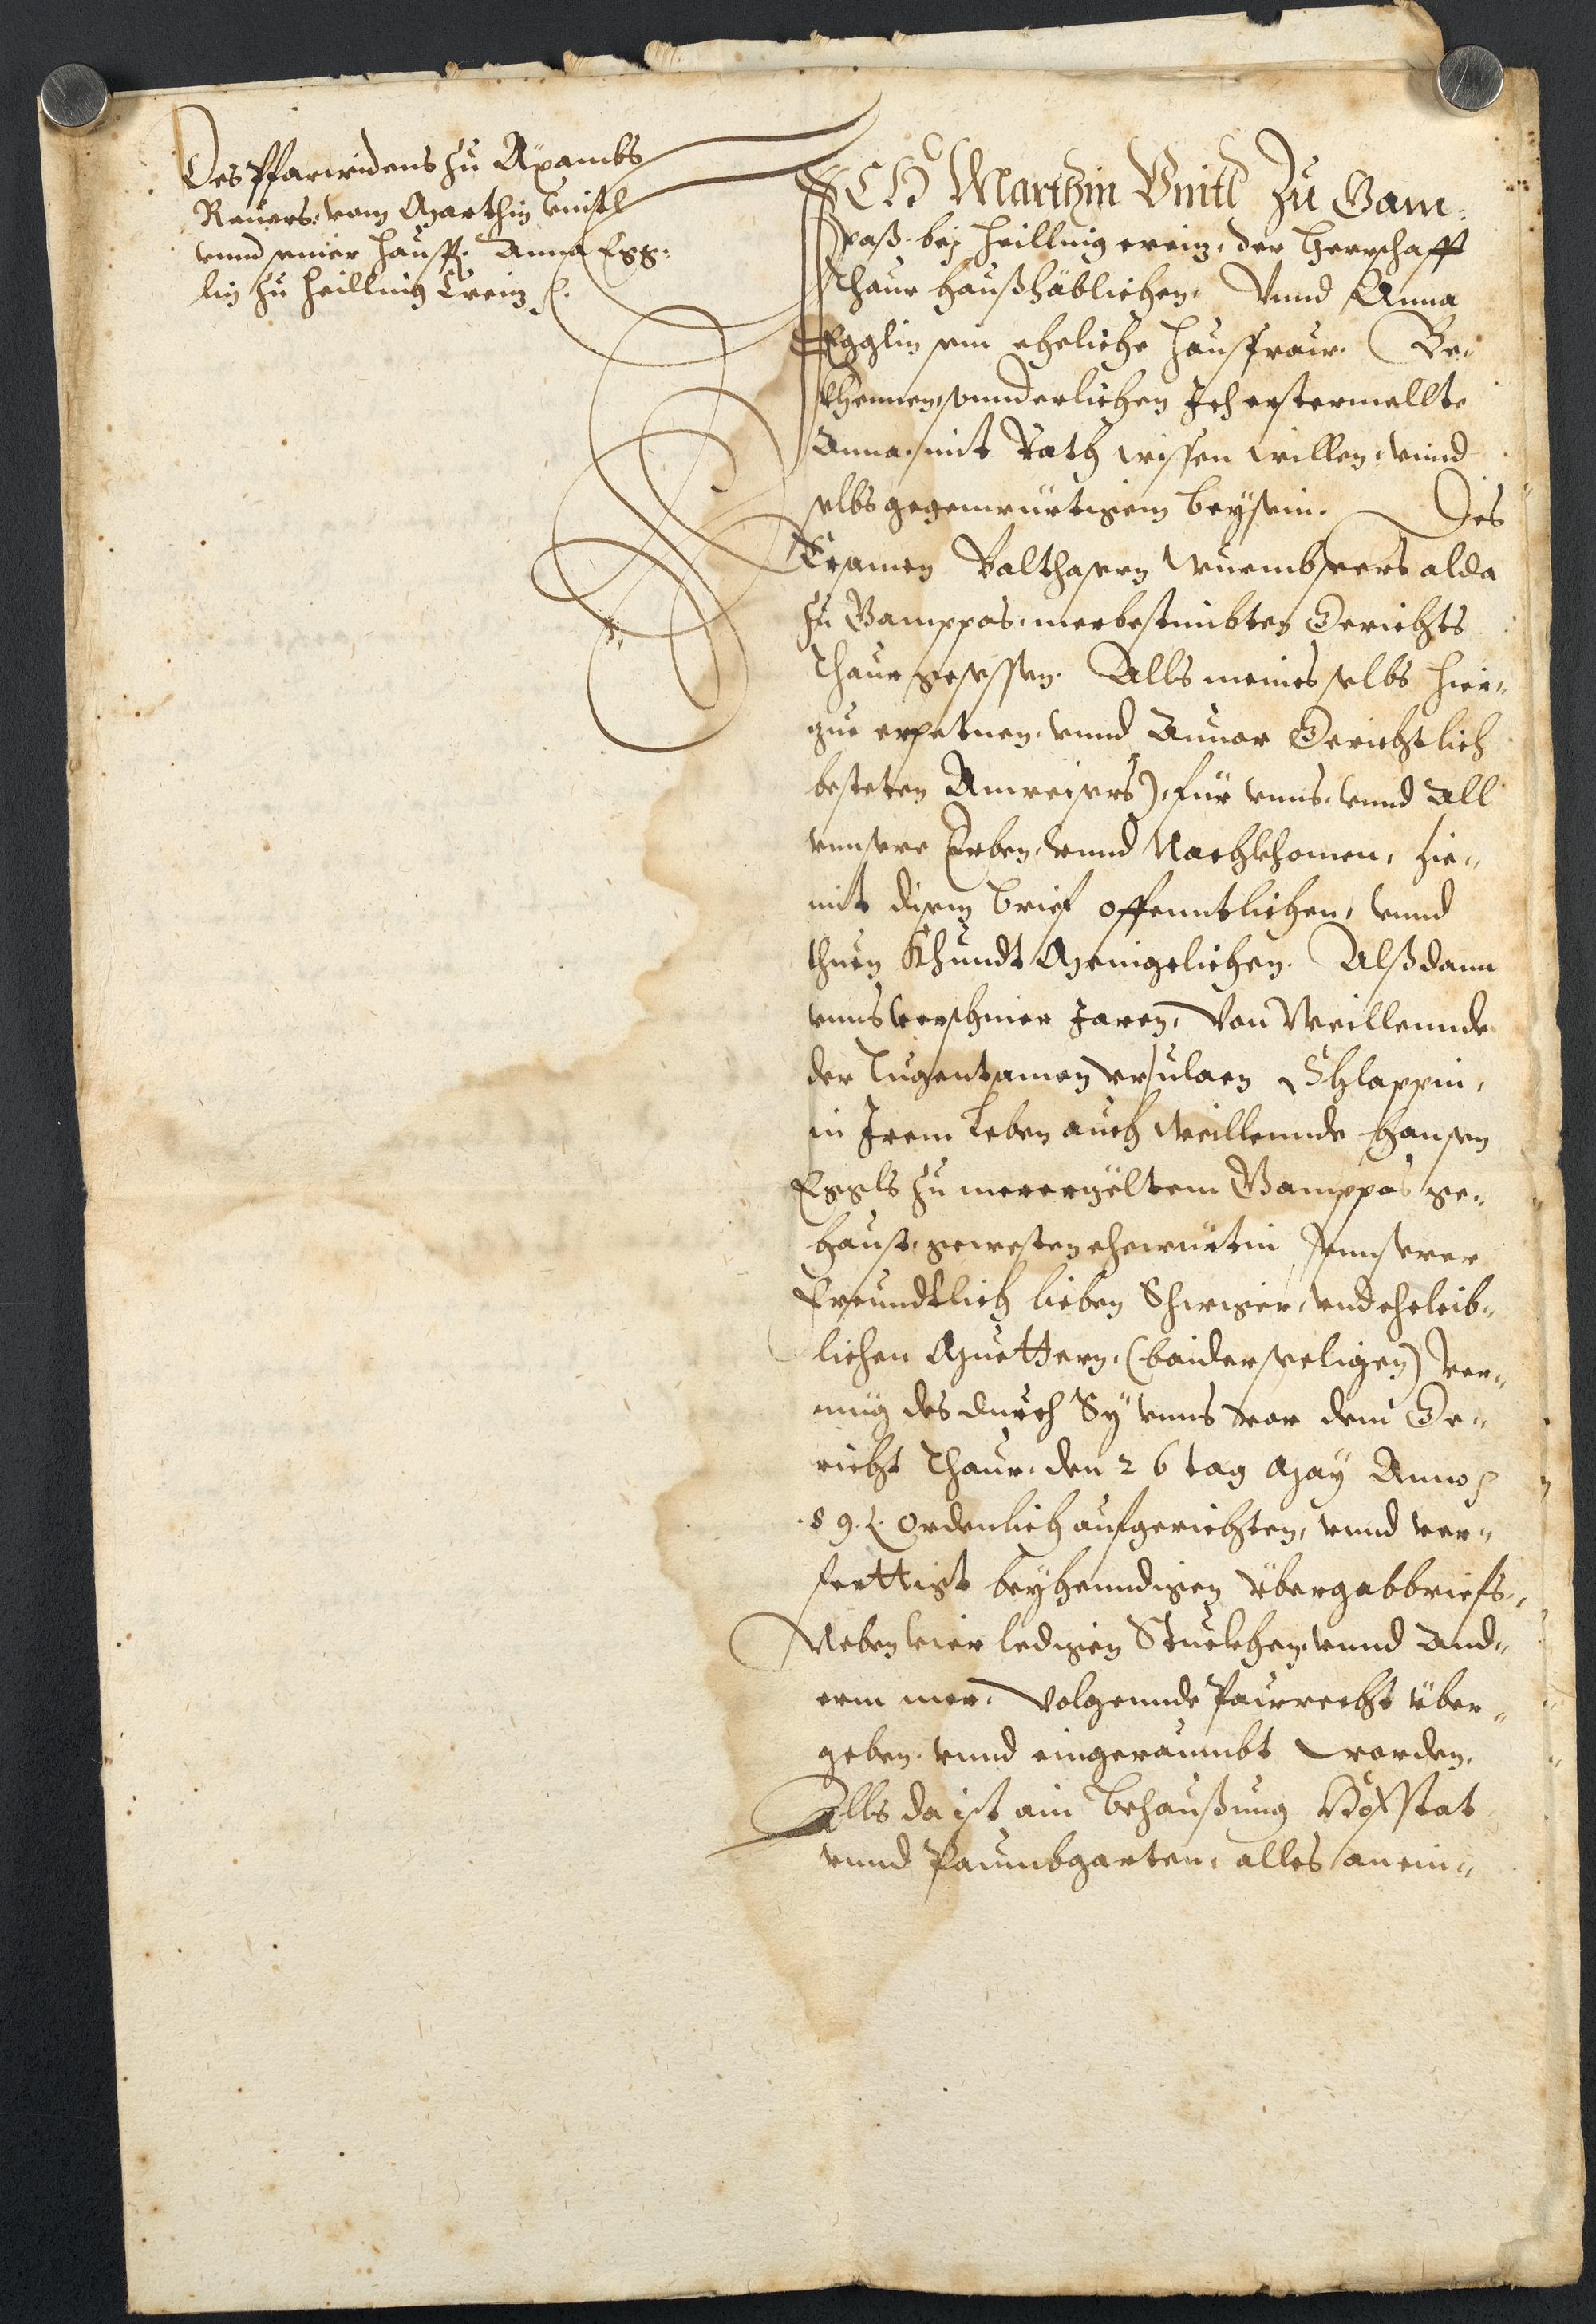 Des Pfarrwidens zu Axambs
Reuers. vom Marthin Vnitl
vnnd seiner hausfr. Anna Egg¬
lin zu Heilling Creiz
ICH Marthin Vnitl Zu Gam¬
paß bej Heilling Creiz, der Herrschafft
Thaur Haußhäblichen, Vnnd Anna
Egglin sein eheliche Hausfraw. Be¬
khennen, sunderlichen Ich erstermellte
Anna, mit Rath wissen willen, vnnd
selbs gegenwürtigem Beysein. Des
Ersamen Balthasern alda
zu Gamppas, merbestimbten Gerichts
Thaur gesessen. Alls meines selbs hier¬
zue erpetnen, vnnd Annor Gerichtlich
besteten Anweisers), für vnns, vnnd All
vnnsere Erben, vnnd Nachkhomen, hie¬
mit disem Brief offenntlichen, vnnd
thuen Khundt Meingelichen. Alß dann
vnns verschiner Jaren, Von Weillennde
der Tugentsamen Vrsulaen Schlappin,
in Irem Leben auch Weillennde Hansen
Eggls zu merergöltem Gamppas ge¬
haust, gewesten ehewürtin, vnnserer
Freundtlich lieben Schwiger, vnd eheleib¬
lichen Muettern, (baider seeligen) Ver¬
müg des durch Sÿ vnns vor dem Ge¬
richt Thaur, den 26 tag Maÿ Anno
.89. Ordenlich aufgerichten, vnnd ver¬
ferttigt beÿhenndigen Übergabbriefs,
Neben vier ledigen Stuckhen, vnnd And¬
erm mer, Volgennde Paurecht über¬
geben, vnnd eingeraumbt worden,
Alls da ist ain Behaußung Hofstat
vnnd Paumbgarten, alles anein¬